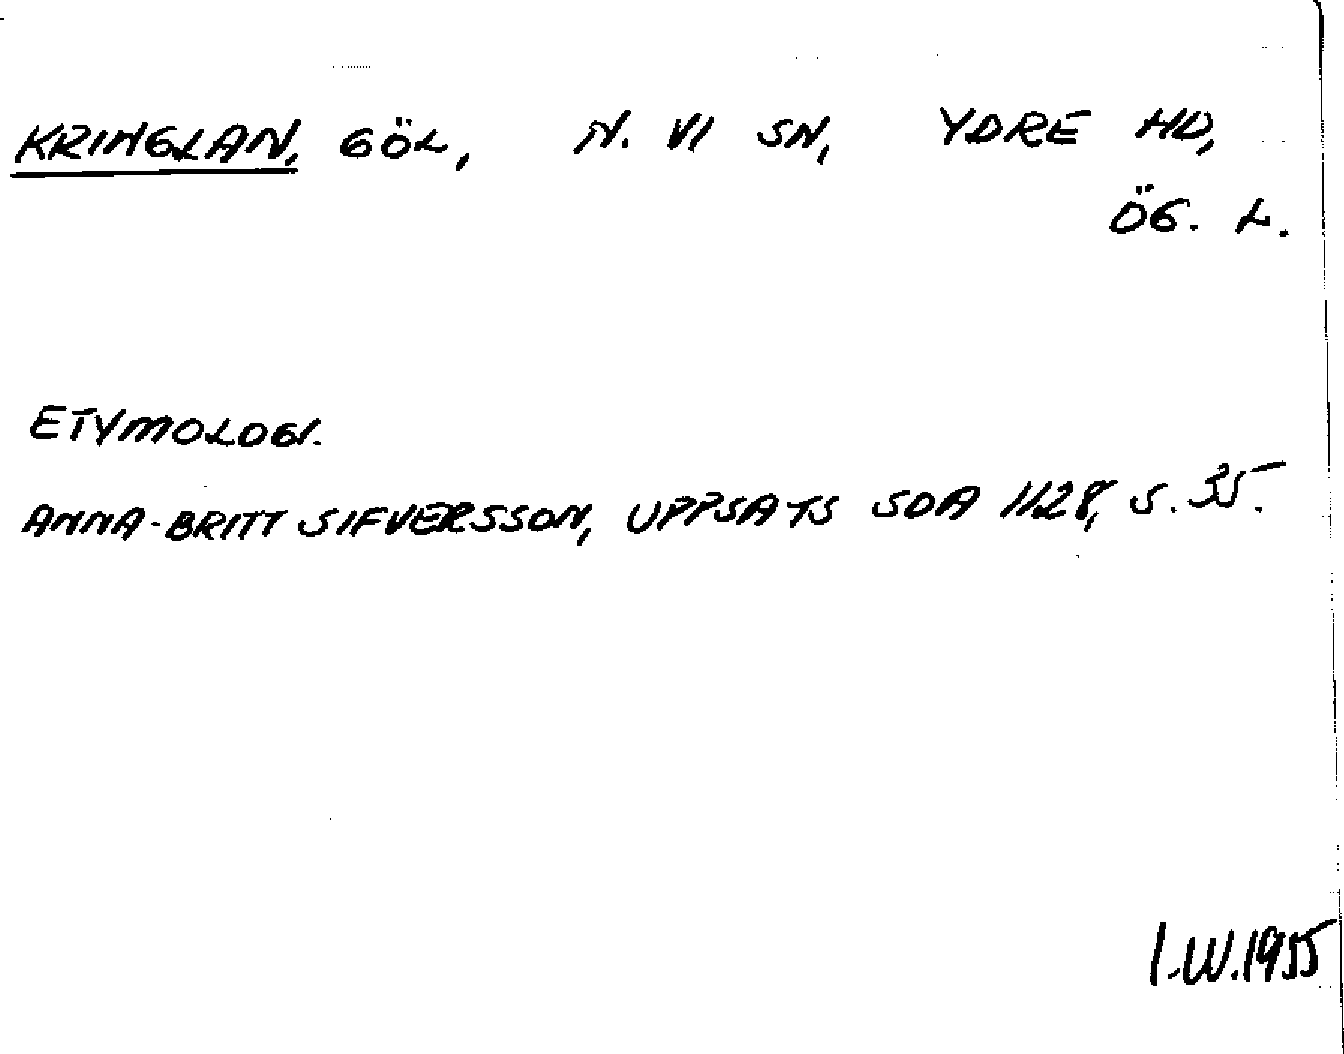 KRINGLAN, GÖL, N. VI SN, YDRE HD,
ÖG. L.
ETYMOLOGI.
ANNA-BRITT SIFVERSSON, UPPSATS SOA 1128, S. 35.
I.W.1955